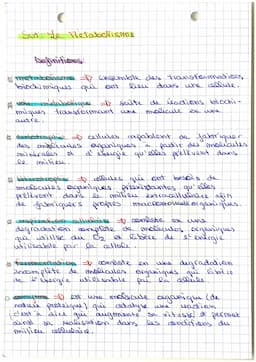 Sur le Métabolisme
Définitions
métabolisme → ensemble des transformations
biochimiques qui ont lieu dans une cellule.
voie métabolique → suite de réactions biochi-
miques transformant une molécule en une
autre.
autotrophe → cellules capables de fabriquer
des molécules organiques à partir des molécules
minérales et d'énergie qu'elles prélèvent dans
le milieu.
hétérotrophe → cellules qui ont besoin de
molécules organiques préexistantes qu'elles
prélèvent dans le milieu extracellulaire afin
de fabriquer propres organiques.
respiration cellulaire → consiste en une
dégradation complète de molécules organiques
qui utilise du O2 et libère de l'énergie
utilisable par la cellule.
fermentation → consiste en une dégradation
incomplète de molécules organiques qui libère
de l'énergie utilisable par la cellule.
enzyme → est une molécule organique (de
nature protéique) qui catalyse une réaction
c'est à dire qui augmente sa vitesse et permet
ainsi sa réalisation dans les conditions du
milieu cellulaire.